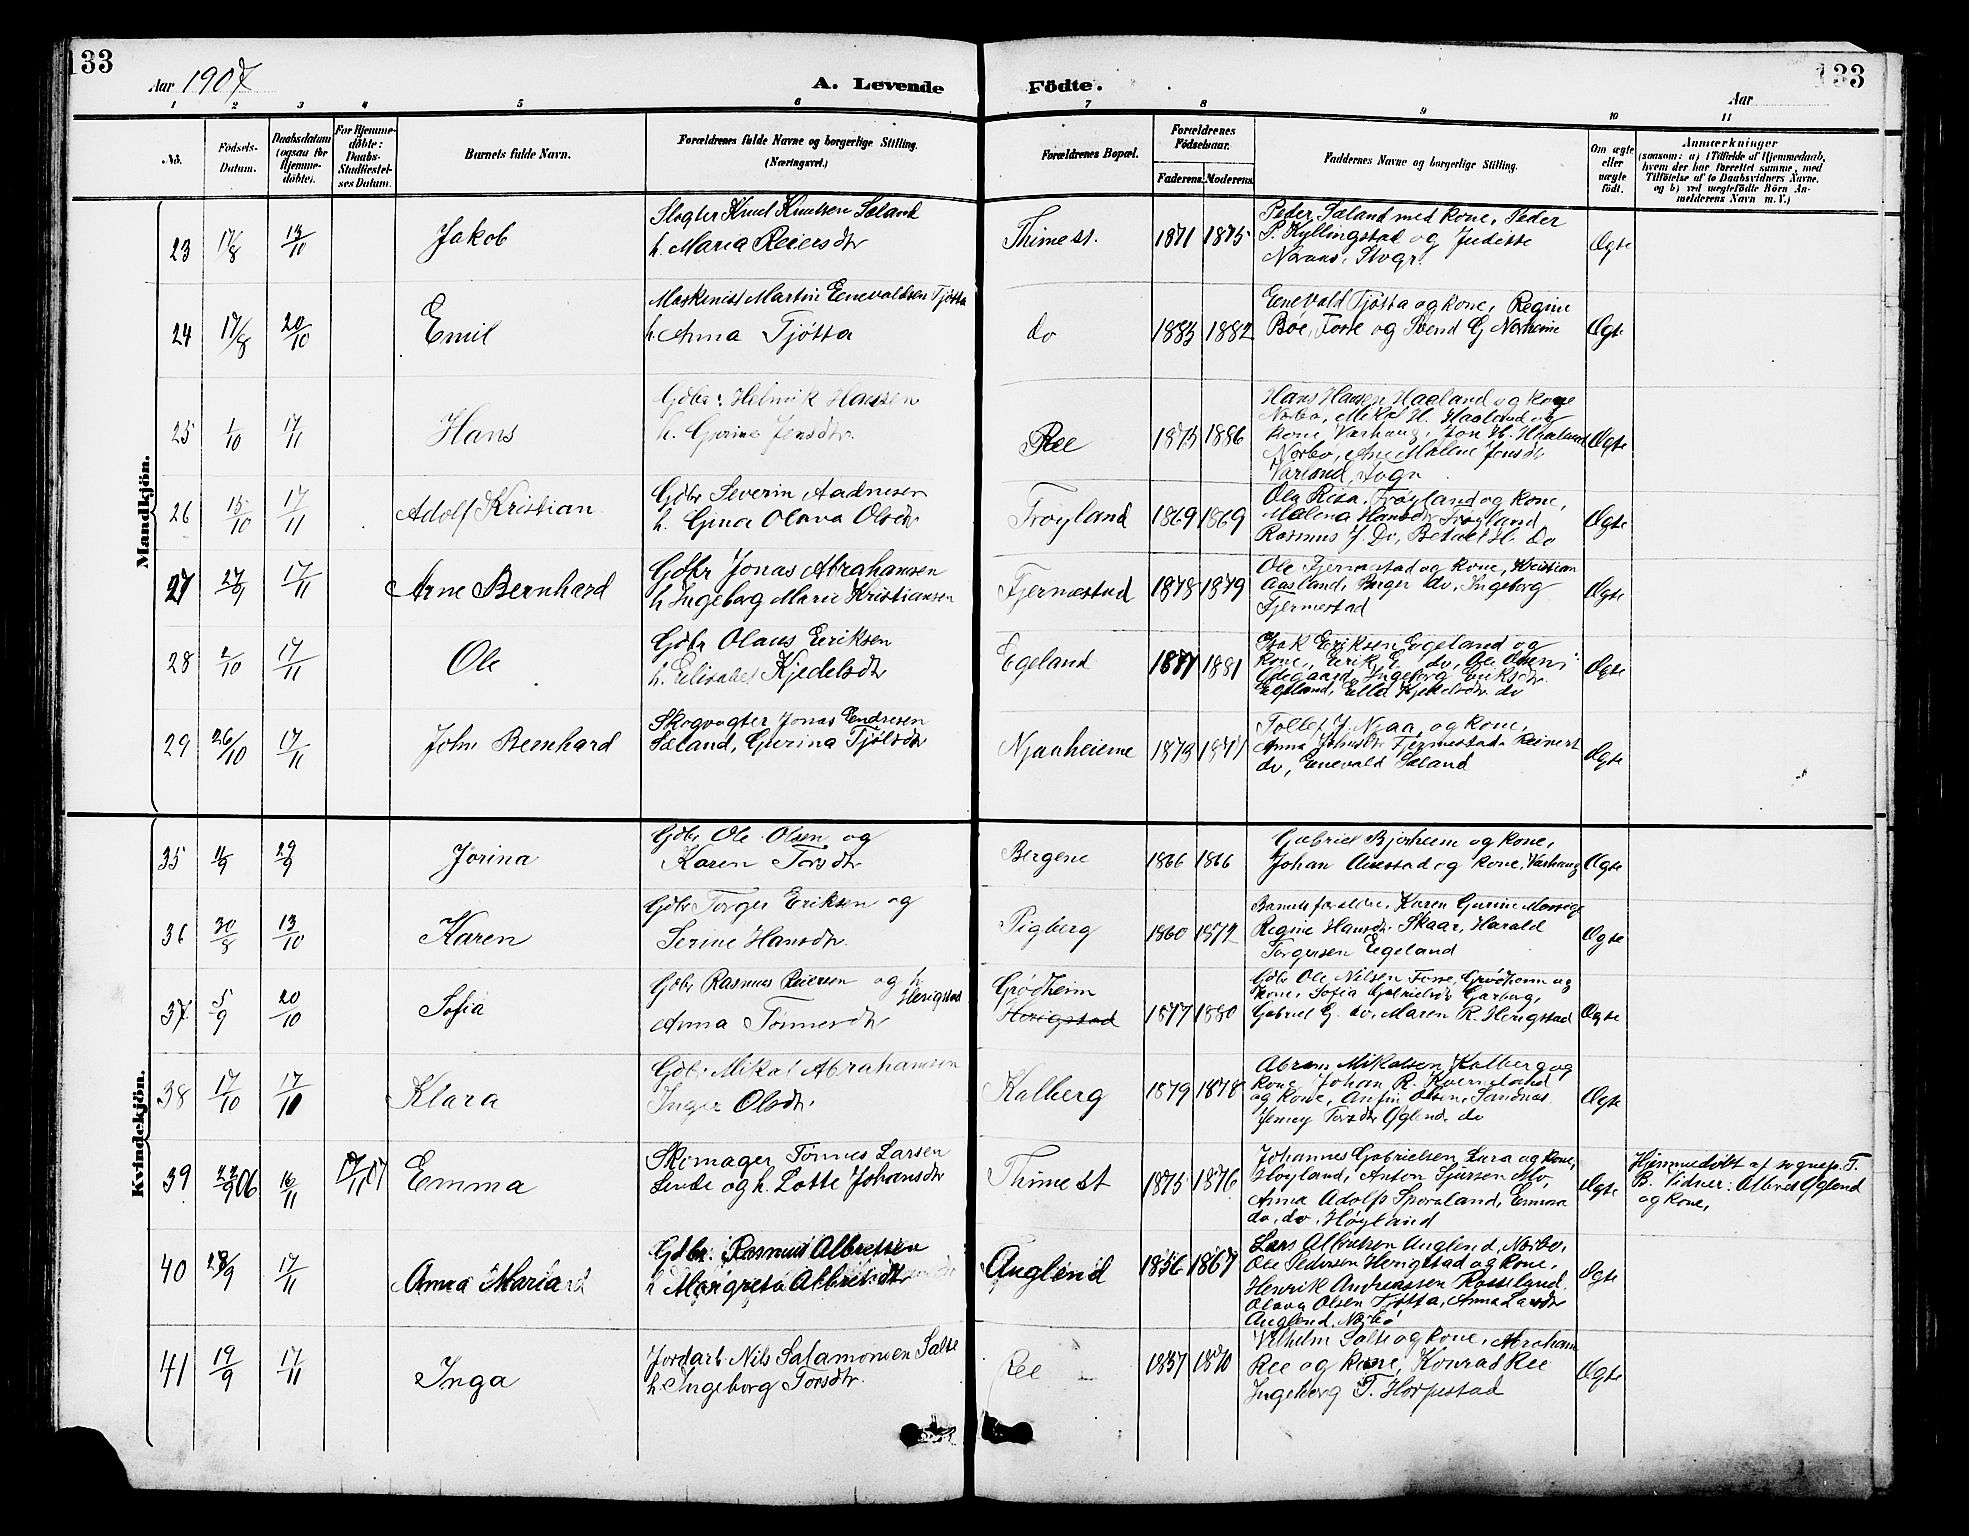 133
133
Aar 1907
A. Levende Födte.
Aar
1 2 3 4 5 6 7 8 9 10 11
No.
Födsels-Datum.
Daabsdatum (ogsaa for Hjemme-döbte).
For Hjemme-döbte: Daabs-Stadfæstel-ses Datum.
Barnets fulde Navn.
Forældrenes fulde Navne og borgerlige Stilling. (Næringsvei.)
Forældrenes Bopæl.
Forældrenes Födselsaar.
Faderens. Moderens.
Faddernes Navne og borgerlige Stilling.
Om ægte eller uægte født.
Anmærkninger
(saasom: a) i Tilfælde af Hjemmedaab, hvem der har forrettet samme, med Tilföielse af to Daabsvidners Navne, og b) ved uægtefödte Börn Anmelderens Navn m. V.)
Mandkjön.
23 17/8 13/10 Jakob
Slagter Knud Knudsen Sæland
h. Maria Reiersdtr
Thime st. 1871 1875
Peder Sæland med kone, Peder
P. Kyllingstad og Juditte
Ægte
24 17/8 20/10 Emil
Maskinist Martin Enevoldsen Tjøtta
h. Anna Tjøtta
do 1883 1882
Enevald Tjøtta og kone, Regine
Boe, Fosse og Svend G Norheim
Ægte
25 1/10 17/11 Hans
Gdbr. Helmik Hansen
h. Gurine Jensdtr.
Ree 1873 1886
Hans Hansen Haaland og kone
Nærbø, Mikal H. Haaland og
kone Varhaug, Jon H. Haaland
Nærbø, Ane Malene Jensdtr
Ægte
26 15/10 17/11 Adolf Kristian
Gdbr Severin Aadnesen
h. Gina Olava Olsdtr
Frøyland 1869 1869
Ola Risa, Frøyland og kone,
Malena Hansdtr Frøyland,
Rasmus J Do, Betuel H. do
Ægte
27 27/9 17/11 Arne Bernhard
Gdbr Jonas Abrahamsen
h. Ingeborg Marie Kristiansen
Fjermestad 1878 1879
Ole Fjermestad og kone, Kristian
Aasland, Inger do, Ingeborg
Fjermestad
Ægte
28 2/10 17/11 Ole
Gdbr Olaus Eriksen
h. Elisabet Kjedelsdtr
Egeland 1881
Isak Eriksen Egeland og
kone, Erik E. do, Ole Olsen
Ødegaard, Ingeborg Eriksdtr
Egeland, Elle Kjedelsdtr do
Ægte
29 26/10 17/11 John Bernhard
Skogvogter Jonas Endresen
Sæland, Gurina Tjølsdtr
Njaaheiene 1873 1877
Tollef J. Njaa og kone,
Anna Johnsdtr Fjermestad, Reinert
do, Enevald Sæland
Ægte
Kvindekjön.
35 11/9 29/9 Jorina
Gdbr Ole Olsen og
Karen Torsdtr
Bergene 1866 1866
Gabriel Bjorheim og kone,
Johan Auestad og kone, Varhaug
Ægte
36 30/8 13/10 Karen
Gdbr Torger Eriksen og
Serine Hansdtr.
Tigberg 1860 1872
Barnets forældre, Karen Gurine
Regine Hansdtr Skaar, Harald
Torgersen Egeland
Ægte
37. 5/9 20/10 Sofia
Gdbr Rasmus Reiersen og h
Herigstad
Anna Tønnesdtr
Grødheim
Herigstad
1877 1880
Gdbr Ole Nilsen Fosse, Grødheim og
kone, Sofia Gabrielsdtr Garborg,
Gabriel G. do, Maren R. Herigstad
Ægte
38 17/10 17/10 Klara
Gdbr Mikal Abrahamsen
Inger Olsdtr.
Kalberg 1879 1878
Abram Mikalsen Kalberg og
kone, Johan R. Kverneland
og kone, Anfin Olsen, Sandnæs
Jenny Torsdtr Øglend, do
Ægte
39 22/9 06 16/11 17/11 07 Emma
Skomager Tønnes Larsen
Lende og h. Lotte Johansdtr
Thime st 1875 1876
Johannes Gabrielsen Lura og kone,
Høyland, Anton Sjursen Mo,
Anna Adolfs Sporaland, Emma
do, do, Høyland
Ægte
Hjemmedøbt af sognepr. T.
B. Vidner: Albret Øglend
og kone,
40 28/9 17/11 Anna Maria
Gdbr. Rasmus Albretsen
h Margreta Albretsdtr
Auglend 1856 1867
Lars Albretsen Auglend, Nærbø,
Ole Pedersen Herigstad og kone,
Henrik Andreassen Rosseland,
Olava Olsen Tjøtta, Anna Larsdtr
Auglend, Nærbø
Ægte
41 19/9 17/11 Inga
Jordarb. Nils Salamonsen Salte
h. Ingeborg Torsdtr.
Ree 1857 1870
Vilhelm Salte og kone, Abraham
Ree og kone, Konrad Ree
Ingeborg T. Horpestad
Ægte